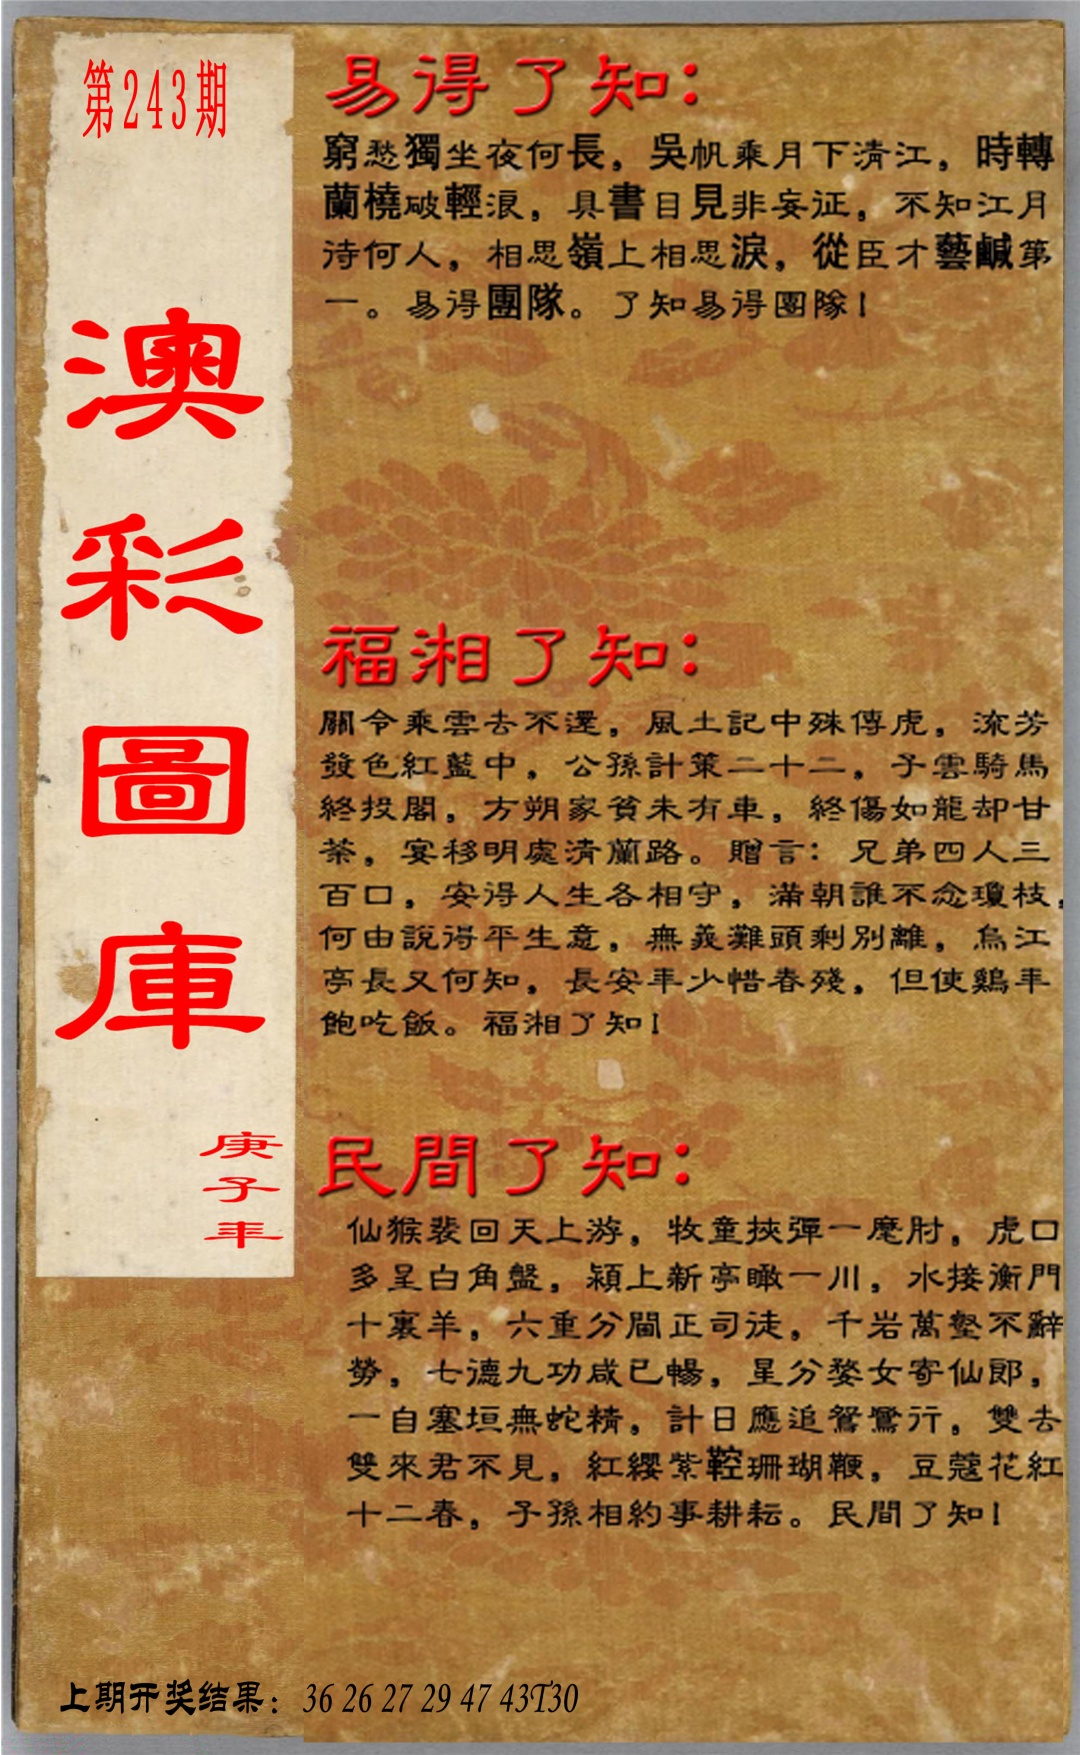 第243期
澳彩圖庫
庚子年
易得了知：
窮愁獨坐夜何長，吳帆乘月下清江，時轉
蘭橈破輕浪，具書目見非妄证，不知江月
待何人，相思嶺上相思淚，從臣才藝鹹第
一。易得團隊。了知易得團隊！
福湘了知：
關令乘雲去不還，風土記中殊傳虎，流芳
發色紅藍中，公孫計策二十二，子雲騎馬
終投閣，方朔家貧未有車，終傷如龍却甘
茶，宴移明處清蘭路。贈言：兄弟四人三
百口，安得人生各相守，滿朝誰不念瓊枝，
何由說得平生意，無義灘頭剩別離，烏江
亭長又何知，長安年少惜春殘，但使鷄年
飽吃飯。福湘了知！
民間了知：
仙猴裴回天上游，牧童挾彈一麾肘，虎口
多呈白角盤，潁上新亭瞰一川，水接衡門
十裏羊，六重分閫正司徒，千岩萬壑不辭
勞，七德九功咸已暢，星分婺女寄仙郎，
一自塞垣無蛇精，計日應追鴛鸞行，雙去
雙來君不見，紅纓紫鞚珊瑚鞭，豆蔻花紅
十二春，子孫相約事耕耘。民間了知！
上期开奖结果：36 26 27 29 47 43T30